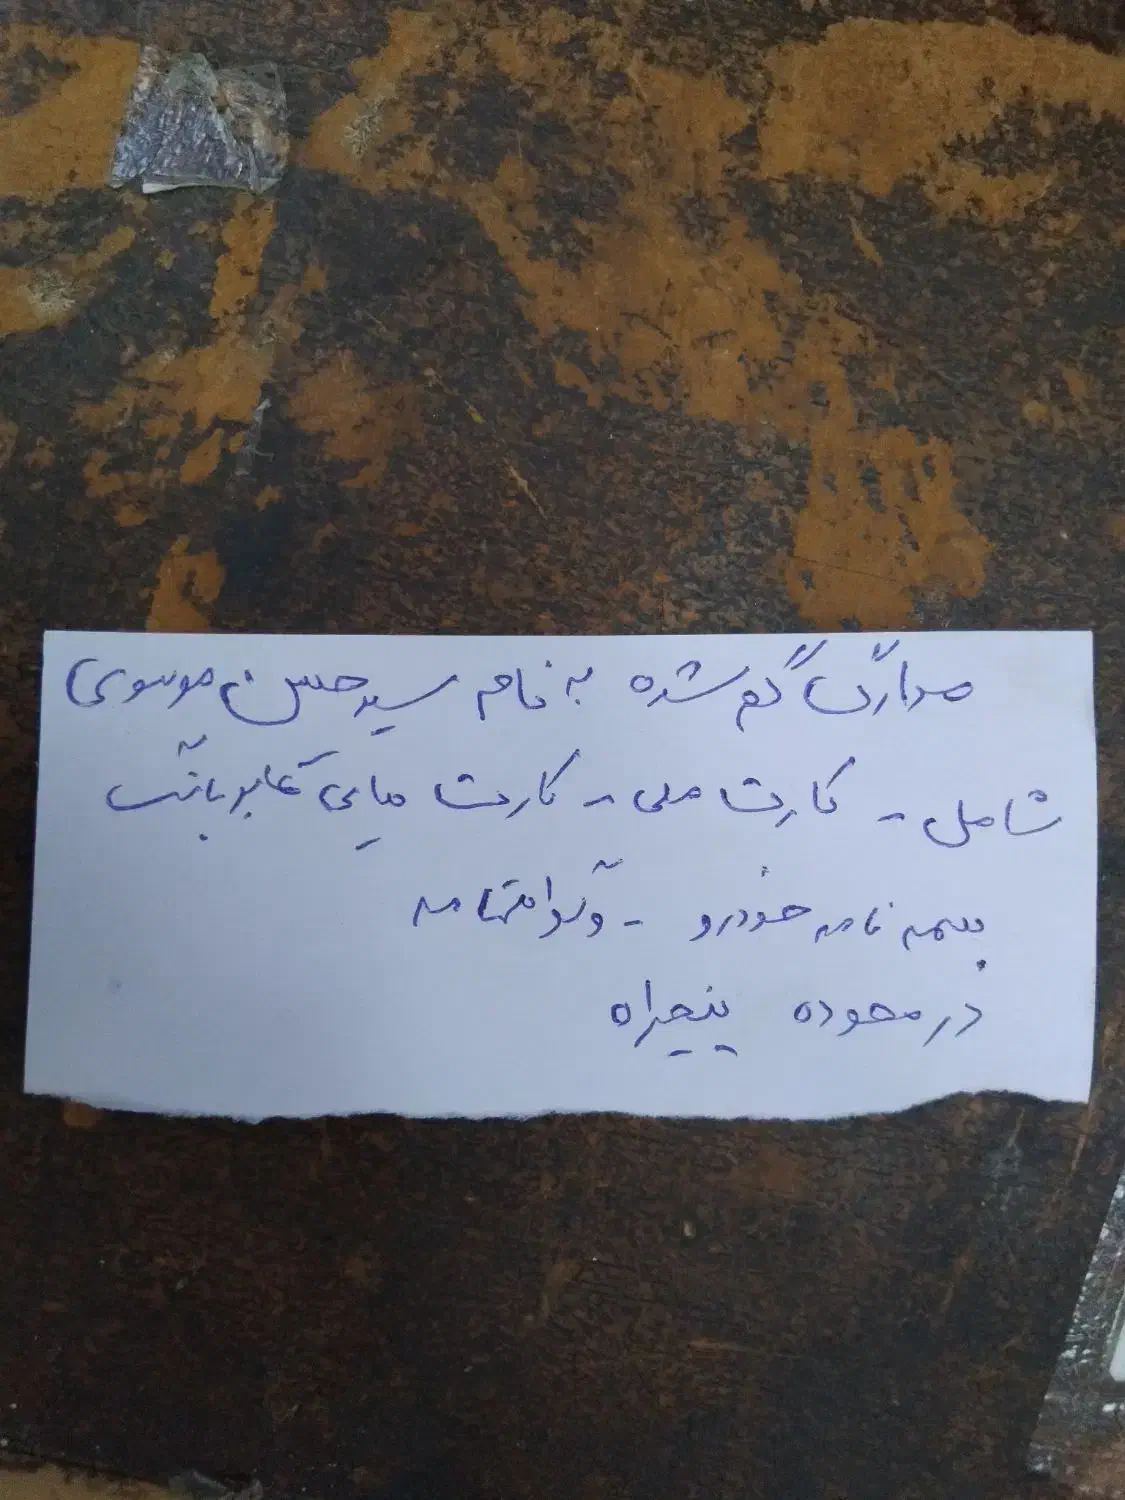 مدارک گم شده به نام سید حسن موسوی
شامل - کارت ملی - کارت های عابر بانک
بیمه نامه خودرو - گواهینامه
در محوده پنیجراه